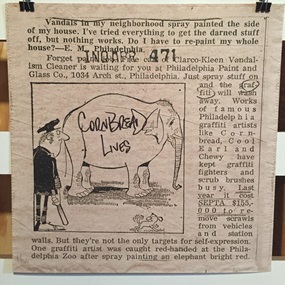 Vandals in my neighborhood spray painted the side
of my house. I've tried everything to get the darned stuff
off, but nothing works. Do I have to re-paint my whole
house?—E. M., Philadelphia.
INDART 471
Forget paint. Clarco-Kleen Vandal-
ism Cleaner is waiting for you at Philadelphia Paint and
Glass Co., 1034 Arch st., Philadelphia. Just spray stuff on
and the graf-
fiti will wash
away. Works
of famous
Philadelphia
graffiti artists
like Corn-
bread, Cool
Earl and
Chewy have
kept graffiti
fighters and
scrub brushes
busy. Last
year it cost
SEPTA $155,-
000 to re-
move scrawls
from vehicles
and station
walls. But they're not the only targets for self-expression.
One graffiti artist was caught red-handed at the Phila-
delphia Zoo after spray painting an elephant bright red.
CORNBREAD
LIVES